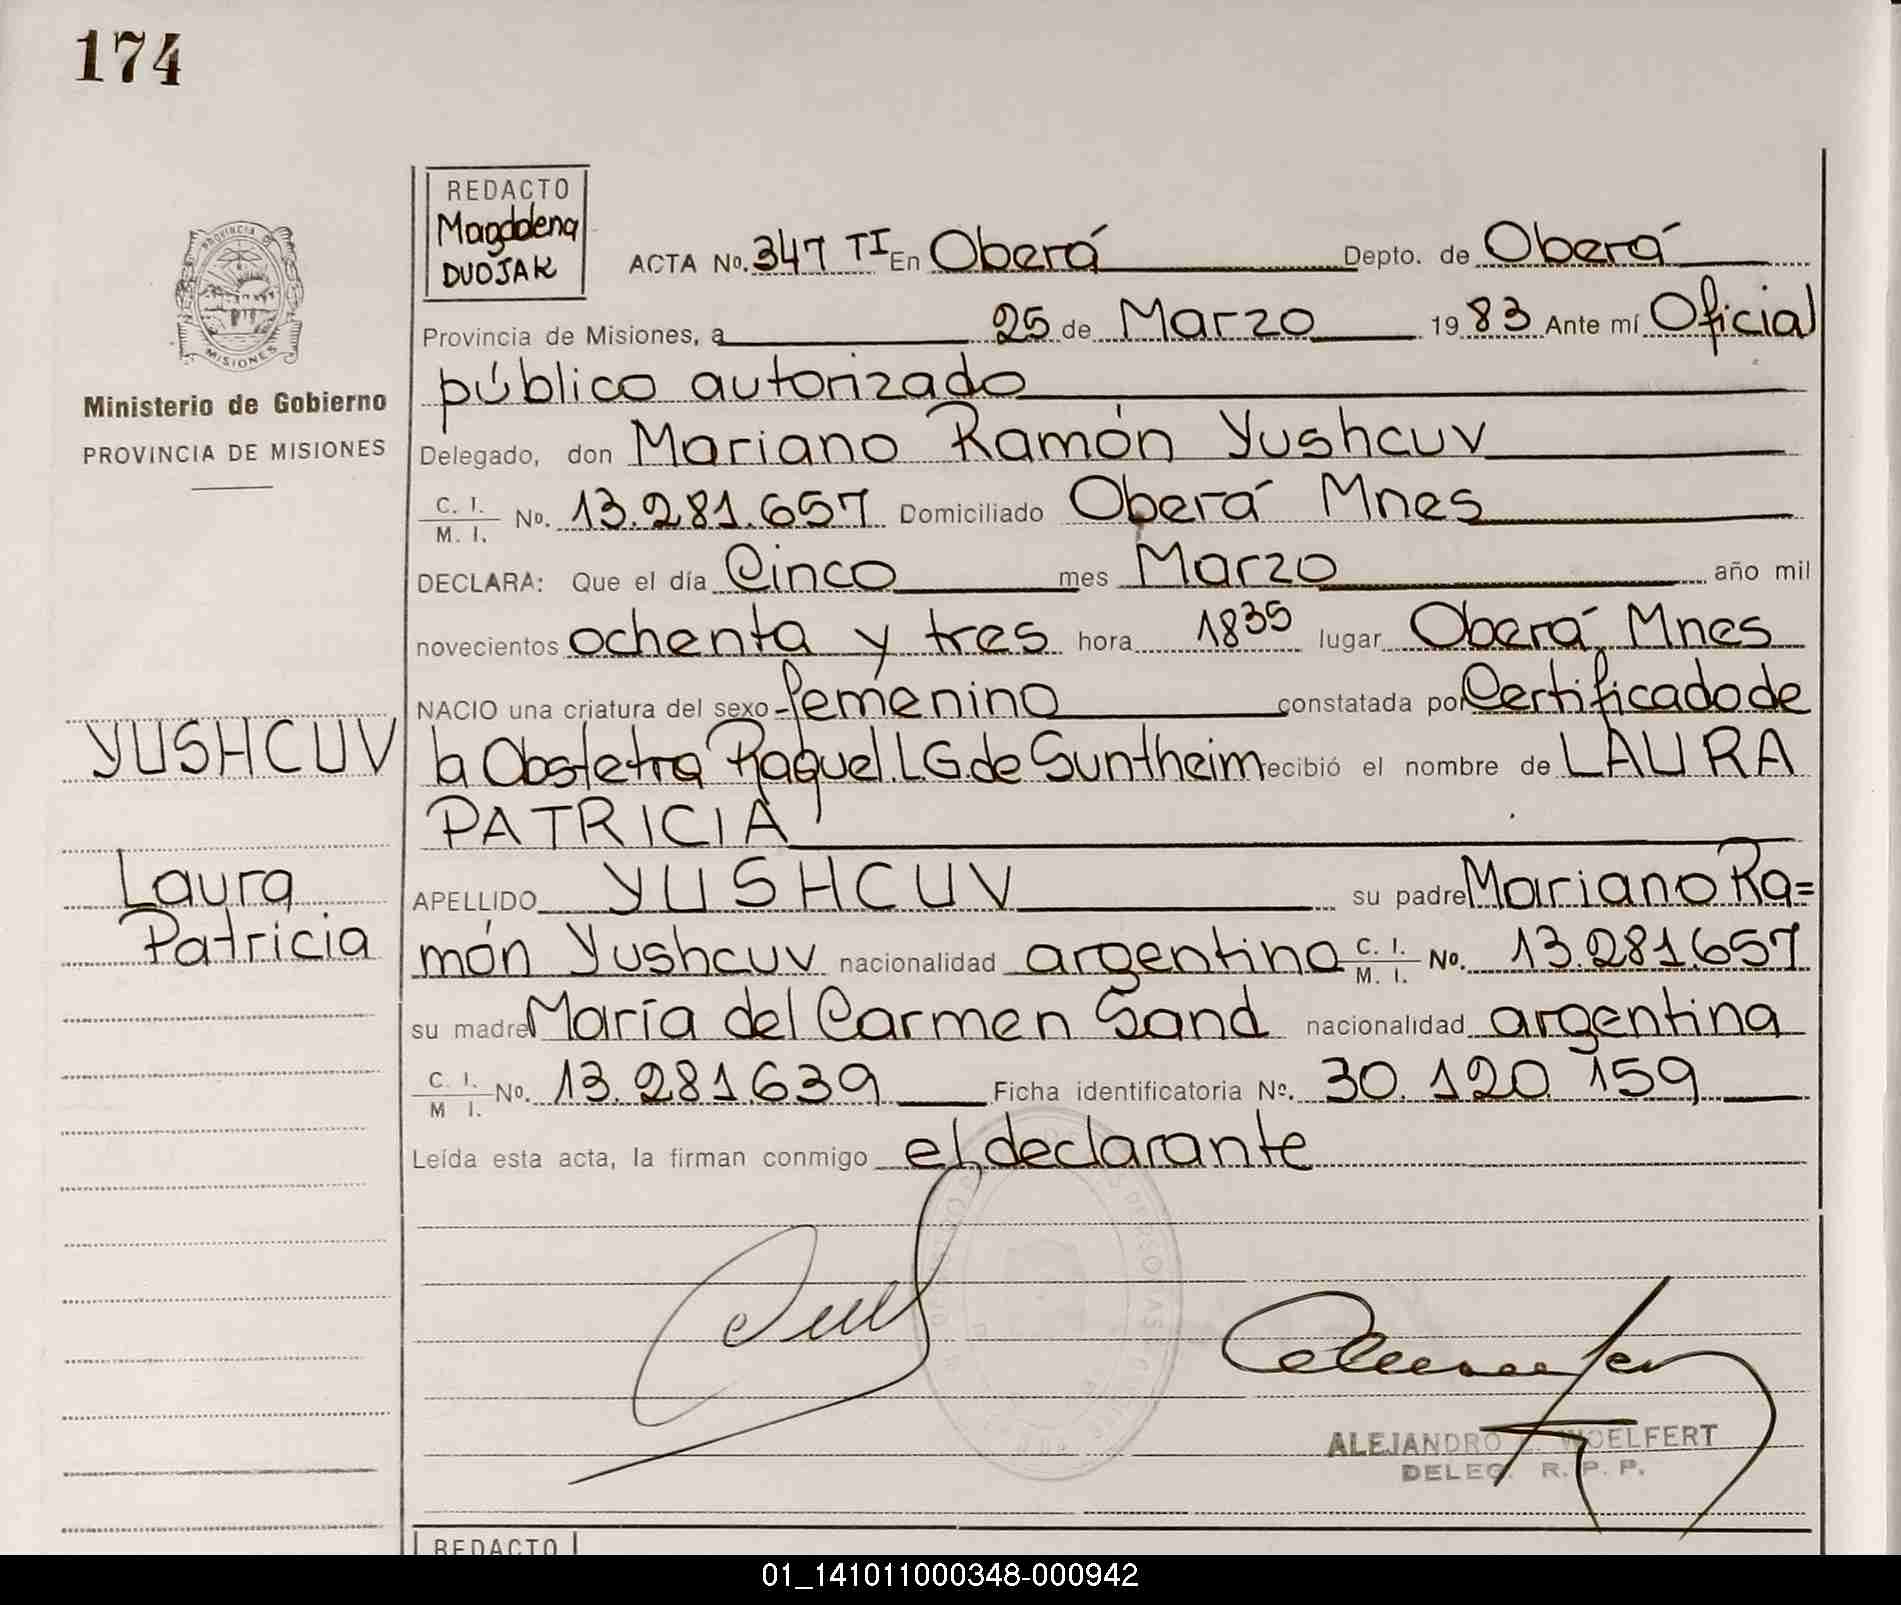 174
REDACTO
Magdalena
DUOJAK
PROVINCIA DE
MISIONES
Ministerio de Gobierno
PROVINCIA DE MISIONES
ACTA No. 347 TI En Oberá Depto. de Oberá
Provincia de Misiones, a 25 de Marzo 1983 Ante mí Oficial
público autorizado
Delegado, don Mariano Ramón Yushcuv
C. I. / M. I. No. 13.281.657 Domiciliado Oberá Mnes
DECLARA: Que el día Cinco mes Marzo año mil
novecientos ochenta y tres hora 1835 lugar Oberá Mnes
NACIO una criatura del sexo femenino constatada por Certificado de
la Obstetra Raquel L G. de Suntheim recibió el nombre de LAURA
PATRICIA
APELLIDO YUSHCUV su padre Mariano Ra=
món Yushcuv nacionalidad argentina C. I. / M. I. No. 13.281.657
su madre María del Carmen Sand nacionalidad argentina
C. I. / M I. No. 13.281.639 Ficha identificatoria No. 30.120.159
Leída esta acta, la firman conmigo el declarante
YUSHCUV
Laura
Patricia
ALEJANDRO WOELFERT
DELEG. R. P. P.
REDACTO
01_141011000348-000942